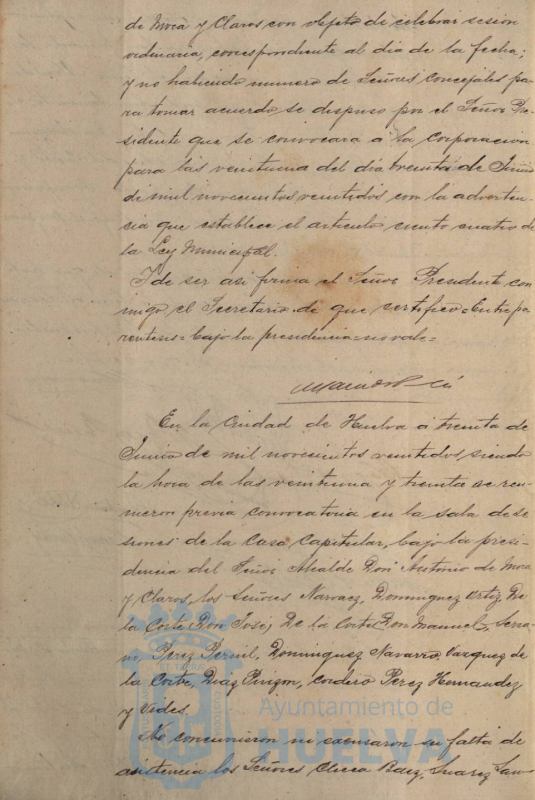 de Mora y Claros con objeto de celebrar sesion
ordinaria, correspondiente al dia de la fecha;
y no habiendo numero de Señores Concejales pa-
ra tomar acuerdo se dispuso por el Señor Pre-
sidente que se convocara a la Corporacion
para las veintiuna del dia treinta de Junio
de mil novecientos veintidos con la adverten-
cia que establece el articulo ciento cuatro de
la Ley Municipal.
Y de ser asi firma el Señor Presidente con
migo el Secretario de que certifico = Entre pa
rentesis = bajo la presidencia = no vale =
En la Ciudad de Huelva á treinta de
Junio de mil novecientos veintidos siendo
la hora de las veintiuna y treinta se reu-
nieron previa convocatoria en la sala de se
siones de la Casa Capitular, bajo la presi-
dencia del Señor Alcalde Don Antonio de Mora
y Claros, los Señores Narvaez, Dominguez Ortiz, De
la Corte Don José, De la Corte Don Manuel, Serra-
no, Perez Bernil, Dominguez Navarro, Vazquez de
la Corte, Diaz Pinzon, Cordero Perez Hernandez
y Vides.
No concurrieron ni excusaron su falta de
asistencia los Señores Baez, Suarez
Ayuntamiento de
HUELVA